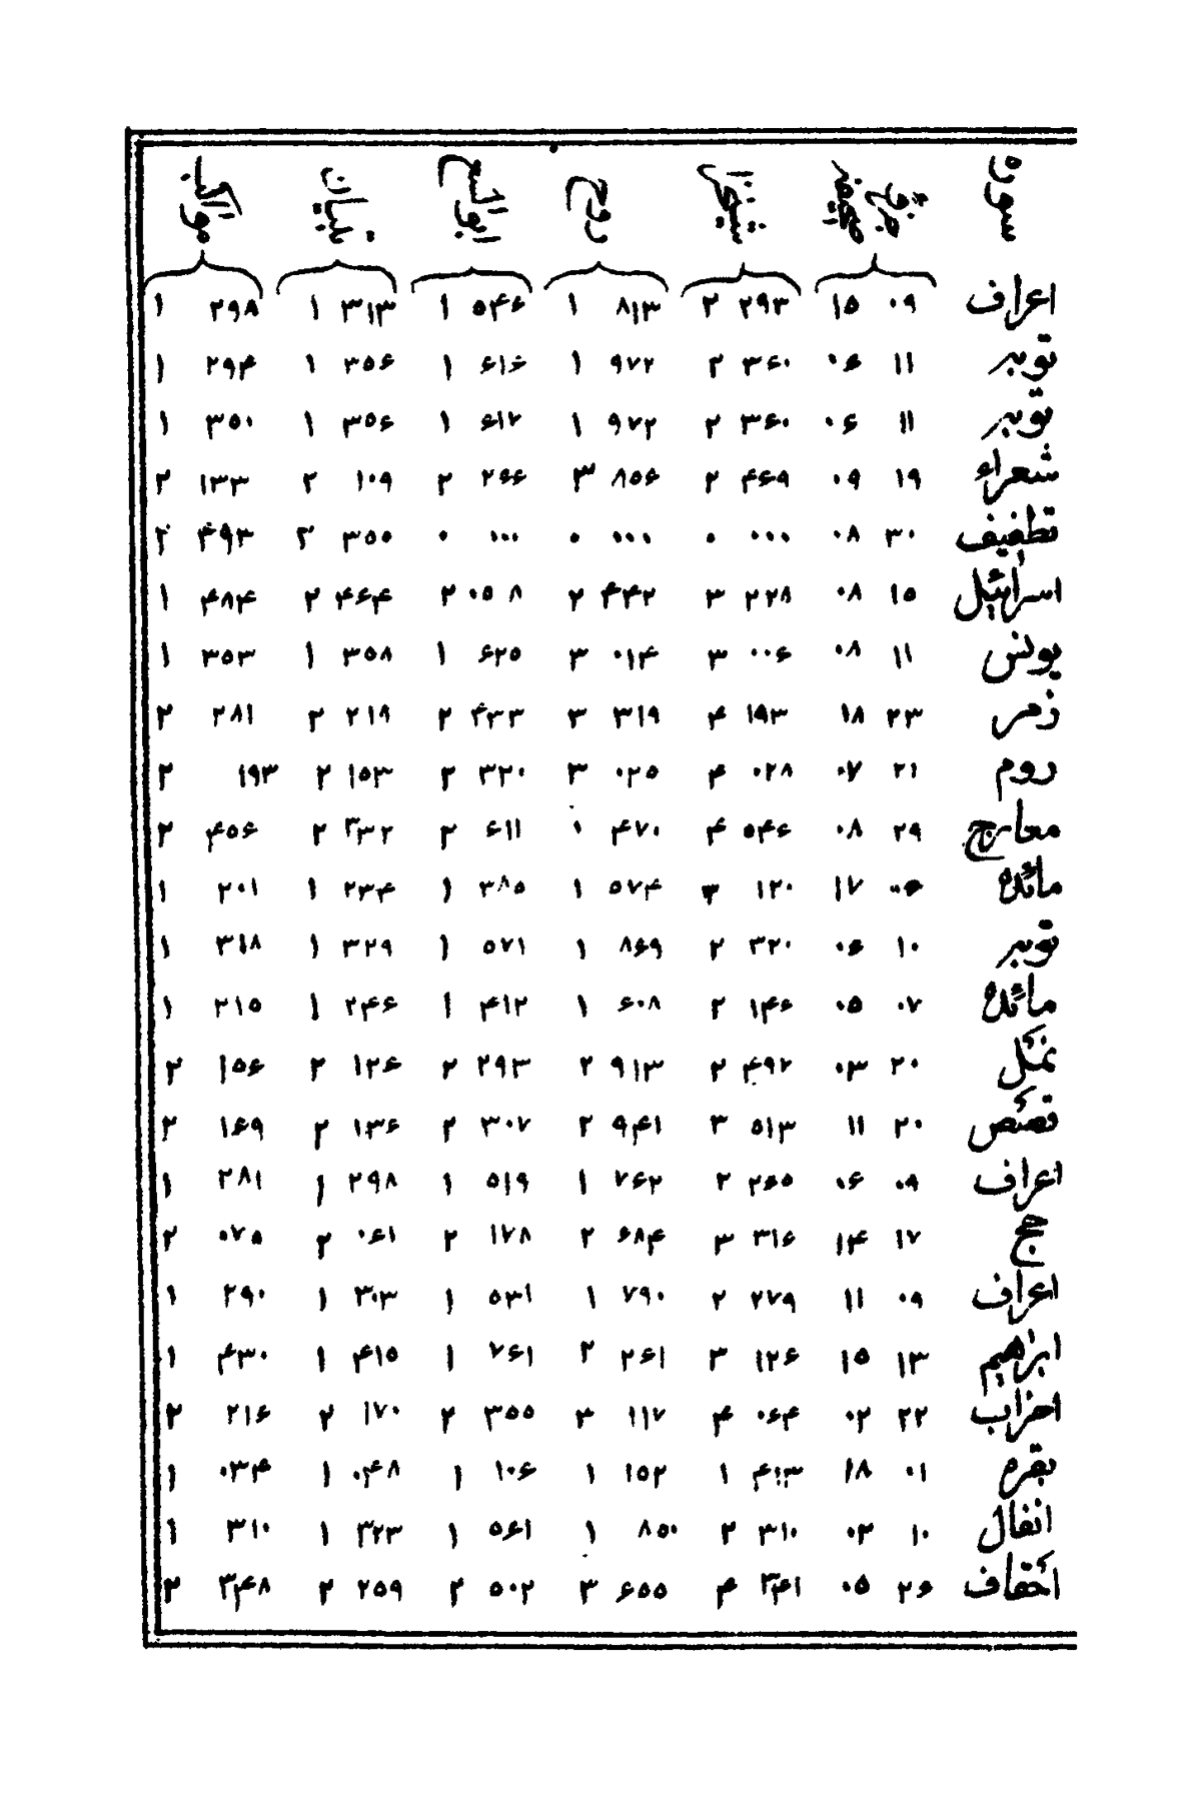 سوره جزو صحیفه شیخزا روح ابو السع تبیان مواکب
اعراف ۰۹ ۱۵ ۲۹۳ ۲ ۸۱۳ ۱ ۵۴۶ ۱ ۳۱۳ ۱ ۲۹۸ ۱
توبه ۱۱ ۰۶ ۳۶۰ ۲ ۹۷۲ ۱ ۶۱۶ ۱ ۳۵۶ ۱ ۲۹۴ ۱
توبه ۱۱ ۰۶ ۳۶۰ ۲ ۹۷۲ ۱ ۶۱۷ ۱ ۳۵۶ ۱ ۳۵۰ ۱
شعراء ۱۹ ۰۹ ۴۶۹ ۲ ۸۵۶ ۳ ۲۶۶ ۲ ۱۰۹ ۲ ۱۳۳ ۲
تطفیف ۳۰ ۰۸ ۰۰۰ ۰ ۰۰۰ ۰ ۰۰۰ ۰ ۳۵۵ ۲ ۴۹۳ ۲
اسرائیل ۱۵ ۰۸ ۲۲۸ ۳ ۴۴۲ ۲ ۰۵۸ ۲ ۴۶۴ ۲ ۴۸۴ ۱
یونس ۱۱ ۰۸ ۰۰۶ ۳ ۰۱۴ ۳ ۶۲۵ ۱ ۳۵۸ ۱ ۳۵۳ ۱
زمر ۲۳ ۱۸ ۱۹۳ ۴ ۳۱۹ ۳ ۴۳۳ ۲ ۲۱۹ ۲ ۲۸۱ ۲
روم ۲۱ ۰۷ ۰۲۸ ۴ ۰۲۵ ۳ ۳۲۰ ۲ ۱۵۳ ۲ ۱۹۳ ۲
معارج ۲۹ ۰۸ ۵۴۶ ۴ ۴۷۰ ۱ ۶۱۱ ۲ ۳۳۲ ۲ ۴۵۶ ۲
مائده ۰۶ ۱۷ ۱۲۰ ۳ ۵۷۴ ۱ ۳۸۵ ۱ ۲۳۴ ۱ ۲۰۱ ۱
توبه ۱۰ ۰۶ ۳۲۰ ۲ ۸۶۹ ۱ ۵۷۱ ۱ ۳۲۹ ۱ ۳۱۸ ۱
مائده ۰۷ ۰۵ ۱۴۶ ۲ ۶۰۸ ۱ ۴۱۲ ۱ ۲۴۶ ۱ ۲۱۵ ۱
نمل ۲۰ ۰۳ ۴۹۲ ۲ ۹۱۳ ۲ ۲۹۳ ۲ ۱۲۶ ۲ ۱۵۶ ۲
قصص ۲۰ ۱۱ ۵۱۳ ۳ ۹۴۱ ۲ ۳۰۷ ۲ ۱۳۶ ۲ ۱۶۹ ۲
اعراف ۰۹ ۰۶ ۲۶۵ ۲ ۷۶۲ ۱ ۵۱۹ ۱ ۲۹۸ ۱ ۲۸۱ ۱
حج ۱۷ ۱۴ ۳۱۶ ۳ ۶۸۴ ۲ ۱۷۸ ۲ ۰۶۱ ۲ ۰۷۵ ۲
اعراف ۰۹ ۱۱ ۲۷۹ ۲ ۷۹۰ ۱ ۵۳۱ ۱ ۳۰۳ ۱ ۲۹۰ ۱
ابراهیم ۱۳ ۱۵ ۱۲۶ ۳ ۲۶۱ ۲ ۷۶۱ ۱ ۴۱۵ ۱ ۴۳۰ ۱
احزاب ۲۲ ۰۲ ۰۶۴ ۴ ۱۱۷ ۳ ۳۵۵ ۲ ۱۷۰ ۲ ۲۱۶ ۲
بقره ۰۱ ۱۸ ۴۱۳ ۱ ۱۵۲ ۱ ۱۰۶ ۱ ۰۴۸ ۱ ۰۳۴ ۱
انفال ۱۰ ۰۲ ۳۱۰ ۲ ۸۵۰ ۱ ۵۶۱ ۱ ۳۲۳ ۱ ۳۱۰ ۱
احقاف ۲۶ ۰۵ ۳۴۱ ۴ ۶۵۵ ۳ ۵۰۲ ۲ ۲۵۹ ۲ ۳۴۸ ۲